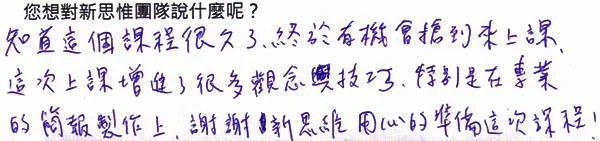 您想對新思惟團隊說什麼呢？
知道這個課程很久了、終於有機會搶到來上課、
這次上課增進了很多觀念與技巧、特別是在專業
的簡報製作上、謝謝新思惟用心的準備這次課程！